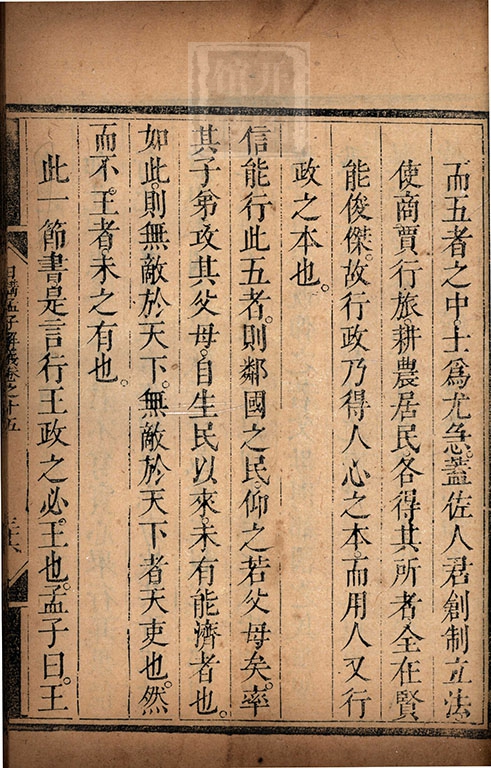 而五者之中。士為尤急。蓋佐人君創制立法
使商賈行旅耕農居民各得其所者全在賢
能俊傑。故行政乃得人心之本。而用人又行
政之本也。
信能行此五者。則鄰國之民。仰之若父母矣。率
其子弟。攻其父母。自生民以來。未有能濟者也。
如此。則無敵於天下。無敵於天下者。天吏也。然
而不王者。未之有也。
此一節書是言行王政之必王也。孟子曰。王
日講孟子解義卷之十五
三十六